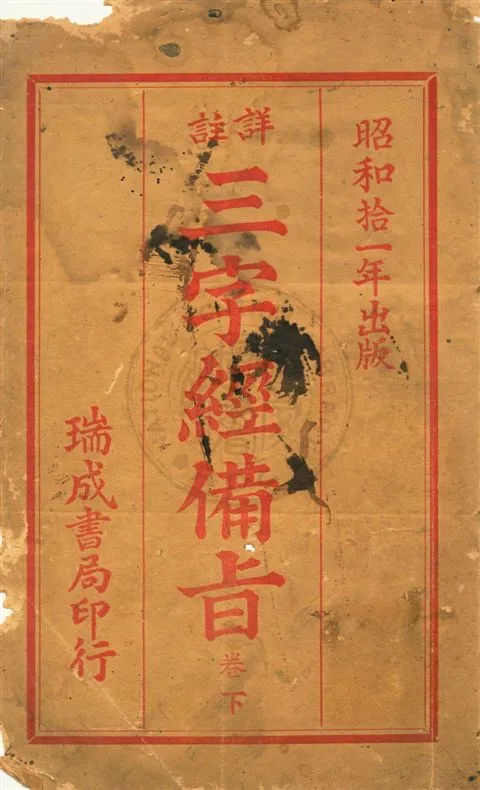 昭和拾一年出版
詳註
三字經備旨
卷下
瑞成書局印行